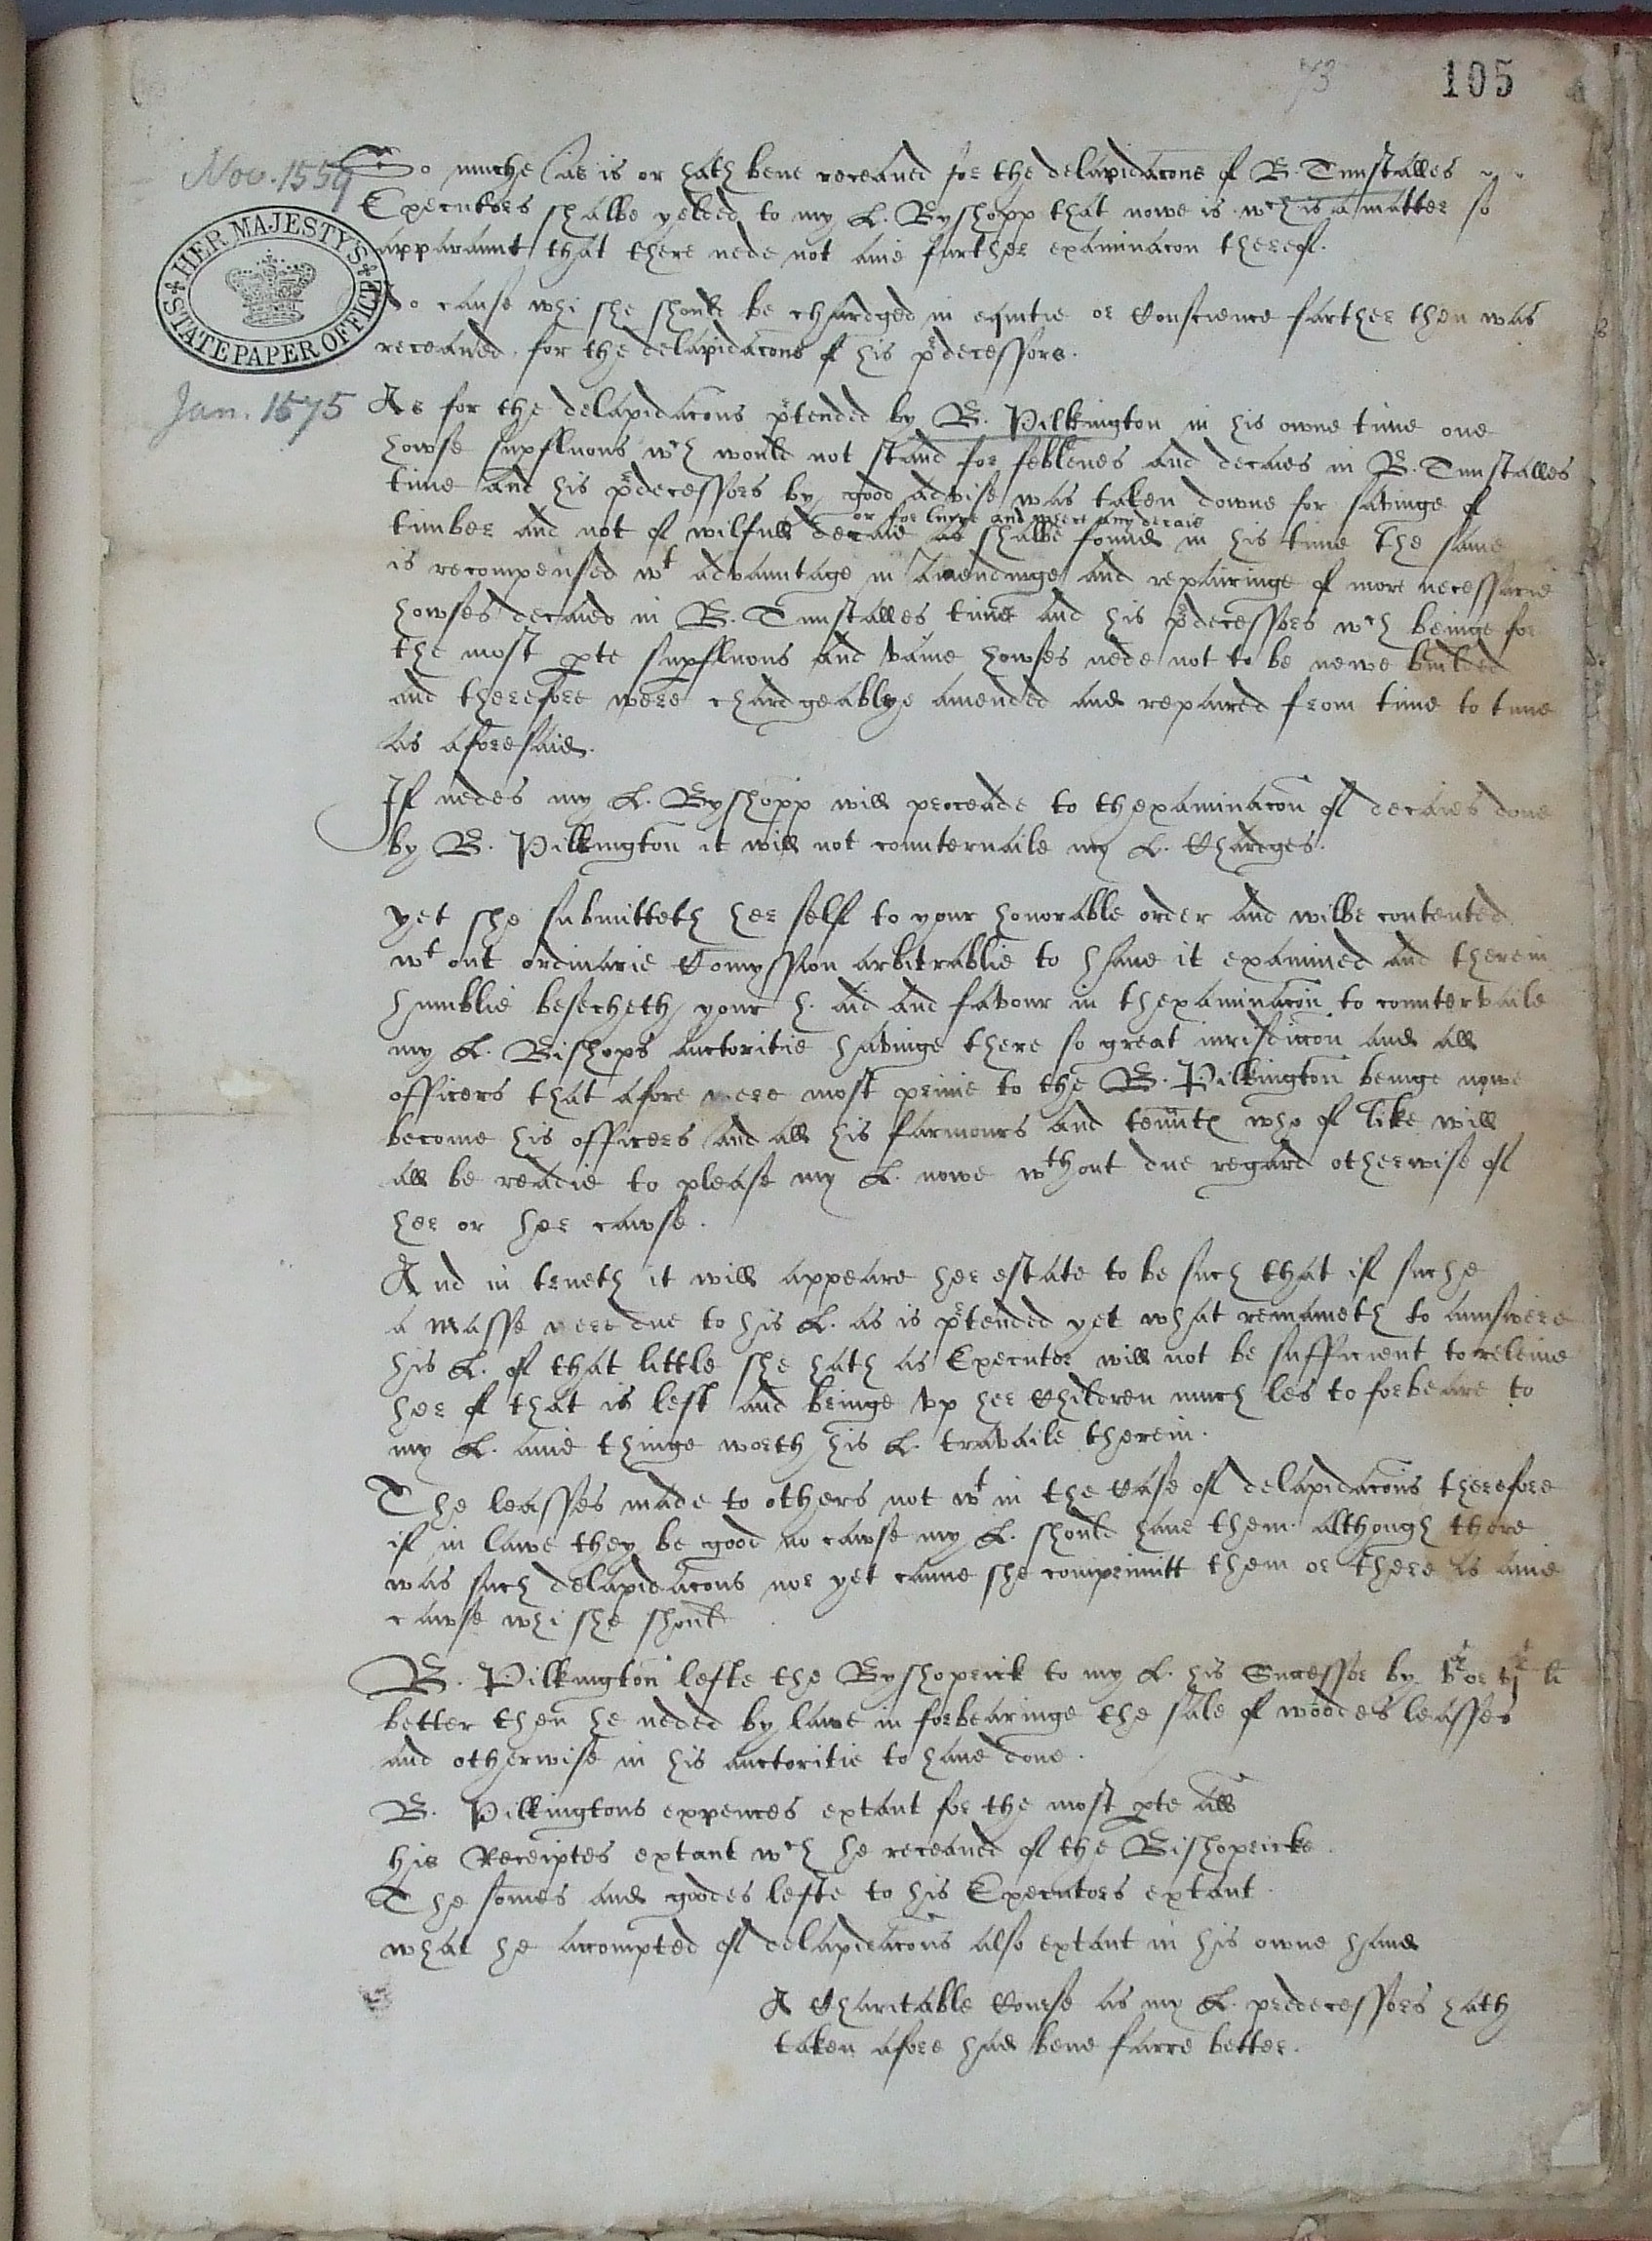 73
105
Nov. 1559
HER MAJESTY'S STATE PAPER OFFICE
Jan. 1575
So muche as is or hath bene receaued for the delapidacons of B. Tunstalles
Executors shalbe yelded to my L. Byshopp that nowe is wch is a matter so
apparaunt that there nede not anie further examinacon therof.
No cause whi she should be chardged in equitie or Conscience farther then was
receaued for the delapidacons of his pdecessors.
As for the delapidacons ptended by B. Pilkington in his owne time one
howse supfluous wch would not stand for feblenes and decaies in B. Tunstalles
time and his pdecessors by good advise was taken downe for savinge of
or for lucre and where any decaie
timber and not of wilfull decaie as shalbe found in his time The same
is recompensed wt advauntage in amendinge and repairinge of more necessarie
howses decaied in B. Tunstalles time and his pdecessors wch beinge for
the most pte supfluous and vaine howses nede not to be newe builded
and therefore were chardgeablye amended and repaired from time to time
as aforesaid.
If nedes my L. Byshopp will proceade to thexaminacon of decaies done
by B. Pilkington it will not counteruaile my L. Chardges.
yet she submitteth her self to your honorable order and wilbe contented
wt out ordinarie Comyssion arbitrablie to haue it examined and therein
humblie besecheth your h. aid and favour in thexaminacon to countervaile
my L. Bishops auctoritie havinge there so great iurisdiccon and all
officers that afore were most privie to the B. Pilkington beinge nowe
become his officers and all his farmours and tennts who of like will
all be readie to please my L. nowe wthout due regard otherwise of
her or her cawse.
And in trueth it will appeare her estate to be such that if suche
a masse were due to his L. as is ptended yet what remaineth to aunswere
his L. of that little she hath as Executor will not be sufficient to releiue
her of that is left and bringe vp her Children much les to forbeare to
my L. anie thinge worth his L. travaile therein.
The leasses made to others not wt in the Case of delapidacons therefore
if in lawe they be good no cawse my L. should haue them although there
was such delapidacons nor yet canne she comprimitt them or there is anie
cawse whi she should
B. Pilkington lefte the Byshoprick to my L. his Successor by
better then he neded by lawe in forbearinge the sale of woodes leasses
and otherwise in his auctoritie to haue done.
B. Pilkingtons expences extant for the most pte all
His Receiptes extant wch he receaued of the Bishopricke.
The somes and goodes lefte to his Executors extant.
what he accompted of delapidacons also extant in his owne hand
A Charitable Course as my L. predecessors hath
taken afore had bene farre better.